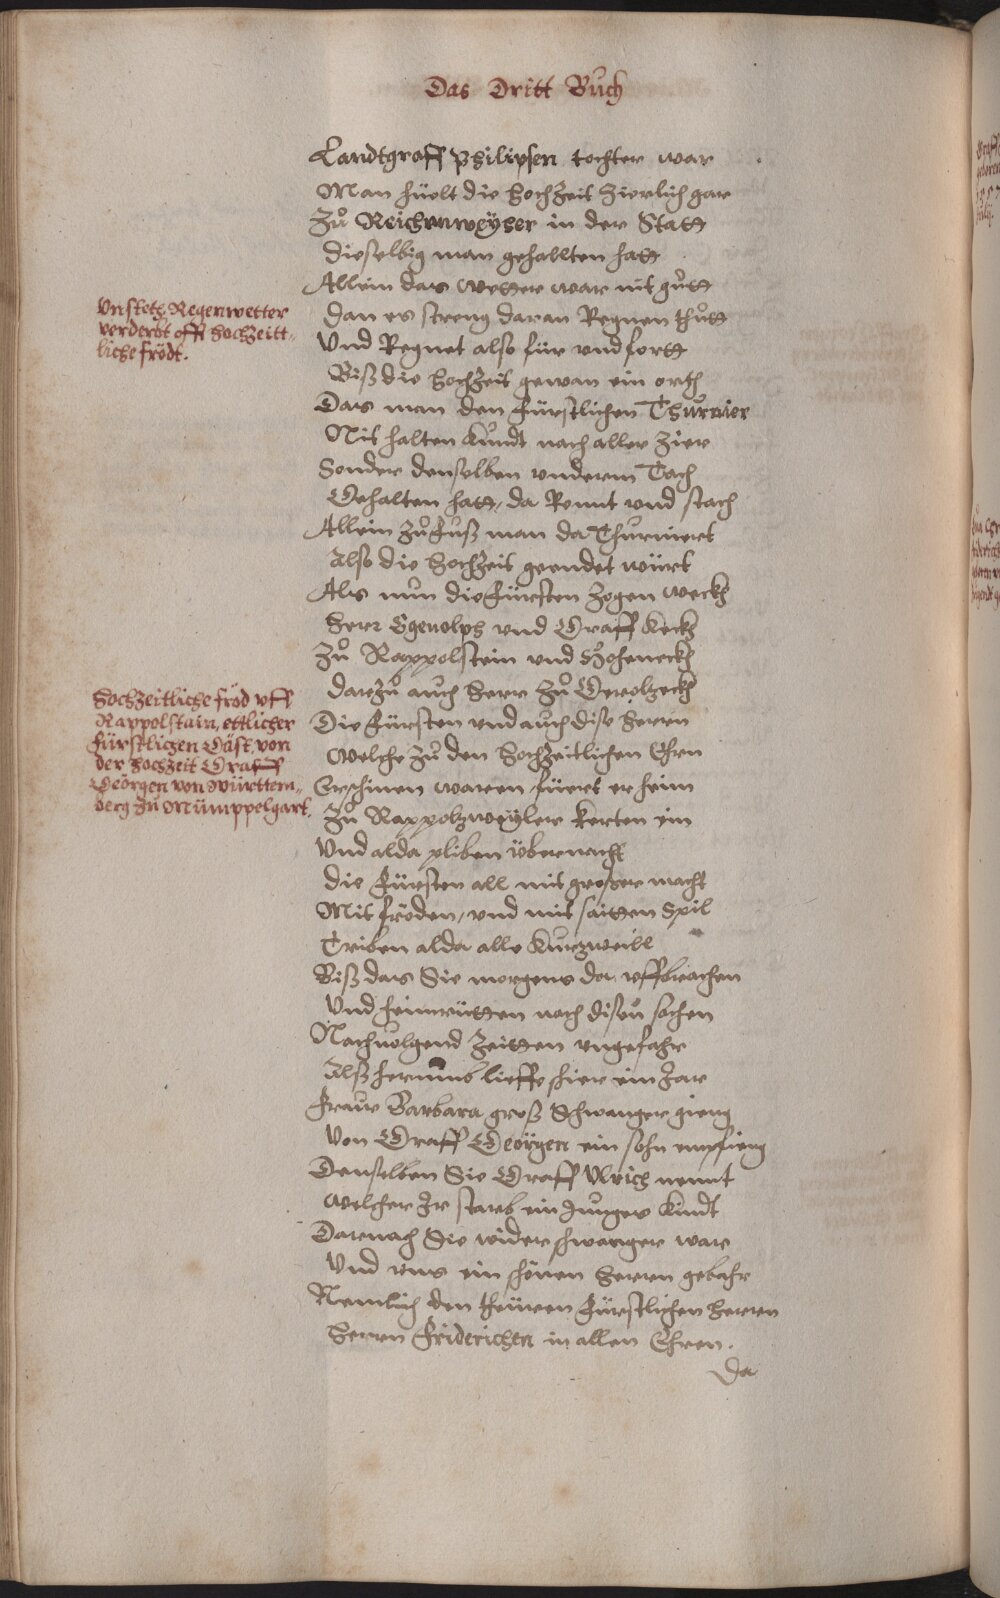 Das Dritt Buch
Landtgraff Philipsen tochter war
Man hüelt die hochzeit zierlich gar
Zů Reichenweyher in der Statt
dieselbig man gehallten hatt
Allein das wetter war nit gůtt
dan es streng daran Regnen thůtt
Und Regnet also für und fortt
Biß die hochzeit gewan ein orth
Das man den fürstlichen Thurnier
Nit halten kundt nach aller zier
Sonder denselben underem Tach
Gehalten hatt, da Rennt und stach
Allein zůfuß man da Thurniert
Also die hochzeit geendet würt
Als nun die fürsten zogen weckh
Herr Egenolph und Graff keckh
Zů Rappolstein und Hoheneckh
darzů auch Herr zů Gerolzeckh
Die fürsten und auch dise herren
welche zů den hochzeitlichen Ehren
Erschinen waren füert er heim
Zů Rappolzweyler kerten ein
Und alda pliben übernacht
die fürsten all mit großer macht
Mit fröden, und mit saitten Spil
Triben alda alle kurzweill
Biß das Sie morgens da uffbrachen
Und heimrütten nach disen sachen
Nachvolgend zeitten ungefahr
Alß herumb lieffe schier ein Jar
fraw Barbara groß Schwanger gieng
Von Graff Geörgen ein sohn empfieng
Denselben Sie Graff Ulrich nennt
welcher Ir starb ein Junges kindt
Darnach Sie wider schwanger war
Und uns ein schönen herren gebahr
Nemlich den theüren fürstlichen herren
herren friderichen in allen Ehren.
Da
Unstetz Regenwetter
verderbt offt hochzeitt-
liche frödt.
Hochzeitliche fröd uff
Rappolstain, ettlicher
fürstlichen Gäst, von
der hochzeit Graff
Geörgen von Württem-
berg zů Mümppelgart.